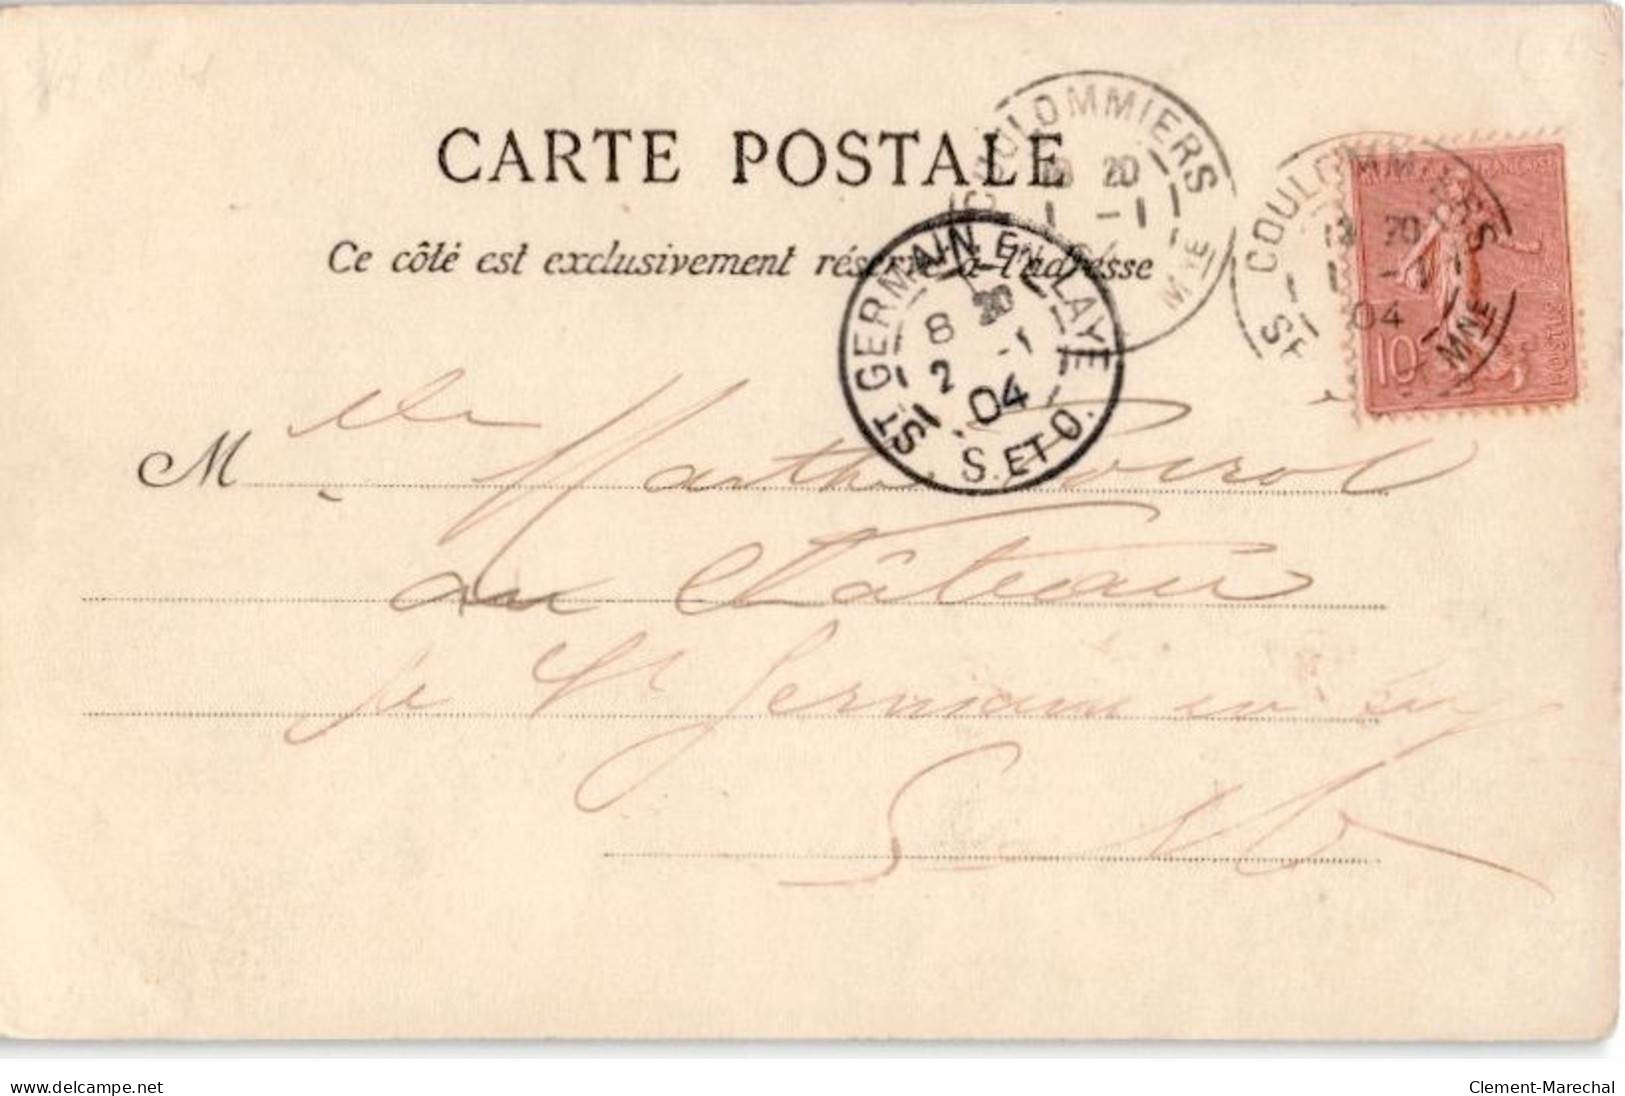 CARTE POSTALE
Ce côté est exclusivement réservé à l'adresse
COULOMMIERS
20
1 -1
Mne
COULOMMIERS
20
1 -1
04
SE Mne
FRANÇAISE
POSTES
10
ST GERMAIN EN LAYE
8 20
2 -1
04
S. ET O.
Mlle Marthe
au Château
St Germain en
www.delcampe.net
Clement-Marechal